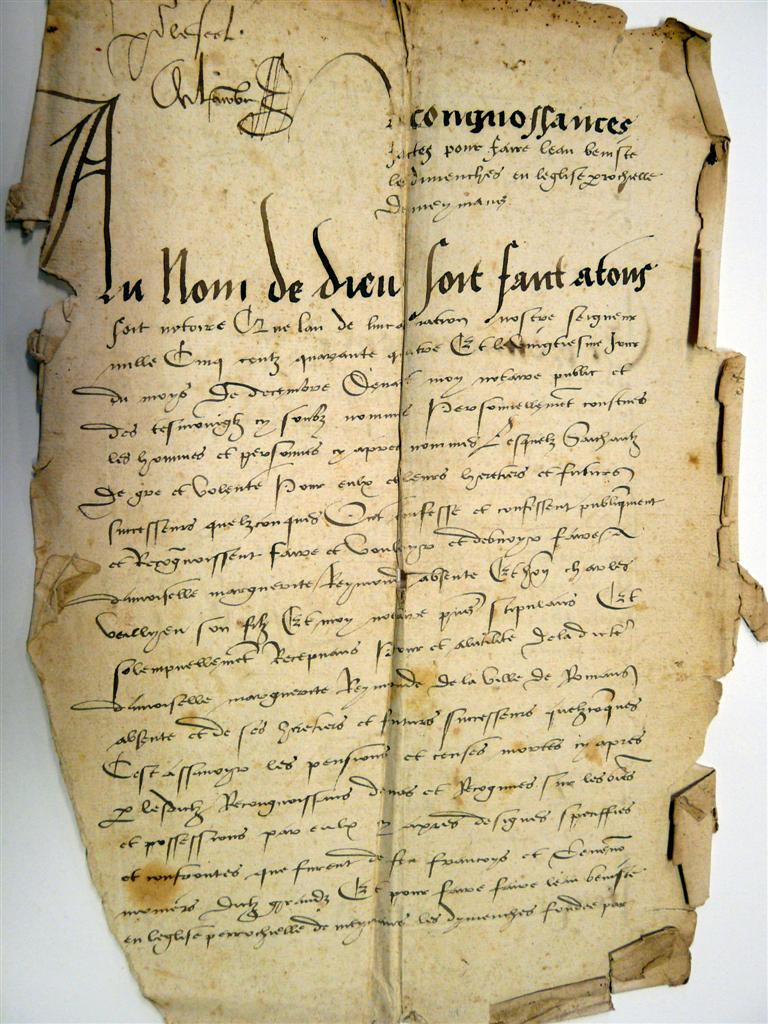 Recongnoissances
factes pour faire leau beniste
les dimenches en leglise parrochielle
de meymans
Au Nom de dieu soit faict a tous
soit notoire Que lan de lincarnation nostre seigneur
mille Cinq centz quarante quatre Et le vingtiesme Jour
du moys De decembre Devant moy notaire public et
des tesmoingtz cy soubz nommes Personnellement constitues
les hommes et personnes cy apres nommes Lesquelz Saichantz
De gre et volente Pour eulx et leurs heretiers et futurs
successeurs quelzconques Ont confesse et confessent publiquement
et Recognoissent faire et voulloyr et debvoyr faire A
damoiselle marguerite Reymonde absente Et charles
veilheu son filz Et moy notaire stipulans Et
solempnellement Recepvans Pour et a lutilite de la dicte
damoiselle marguerite Reymonde de la ville de Romans
absente et de ses heretiers et futurs successeurs quelzconques
Cest assavoyr les pensions et censes mortes cy apres
par lesdictz Recongnoissans et Recognues sur les
et possessions par eulx cy apres designes speciffies
et confrontes que furent de feu francoys et
monniers dictz grandz Et pour faire faire leau beniste
en leglise parrochielle de meymans les dymenches fondee par